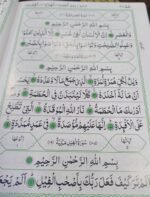 بِسْمِ اللهِ الرَّحْمٰنِ الرَّحِيْمِ
وَالْعَصْرِ اِنَّ الْاِنْسَانَ لَفِيْ خُسْرٍ اِلَّا الَّذِيْنَ اٰمَنُوْا
وَعَمِلُوا الصّٰلِحٰتِ وَتَوَاصَوْا بِالْحَقِّ وَتَوَاصَوْا بِالصَّبْرِ
بِسْمِ اللهِ الرَّحْمٰنِ الرَّحِيْمِ
وَيْلٌ لِّكُلِّ هُمَزَةٍ لُّمَزَةٍ الَّذِيْ جَمَعَ مَالًا وَّعَدَّدَهٗ يَحْسَبُ
اَنَّ مَالَهٗٓ اَخْلَدَهٗ كَلَّا لَيُنْۢبَذَنَّ فِي الْحُطَمَةِ وَمَآ
اَدْرٰىكَ مَا الْحُطَمَةُ نَارُ اللهِ الْمُوْقَدَةُ الَّتِيْ تَطَّلِعُ
عَلَى الْاَفْـِٕدَةِ اِنَّهَا عَلَيْهِمْ مُّؤْصَدَةٌ فِيْ عَمَدٍ مُّمَدَّدَةٍ
بِسْمِ اللهِ الرَّحْمٰنِ الرَّحِيْمِ
اَلَمْ تَرَ كَيْفَ فَعَلَ رَبُّكَ بِاَصْحٰبِ الْفِيْلِ اَلَمْ يَجْعَلْ